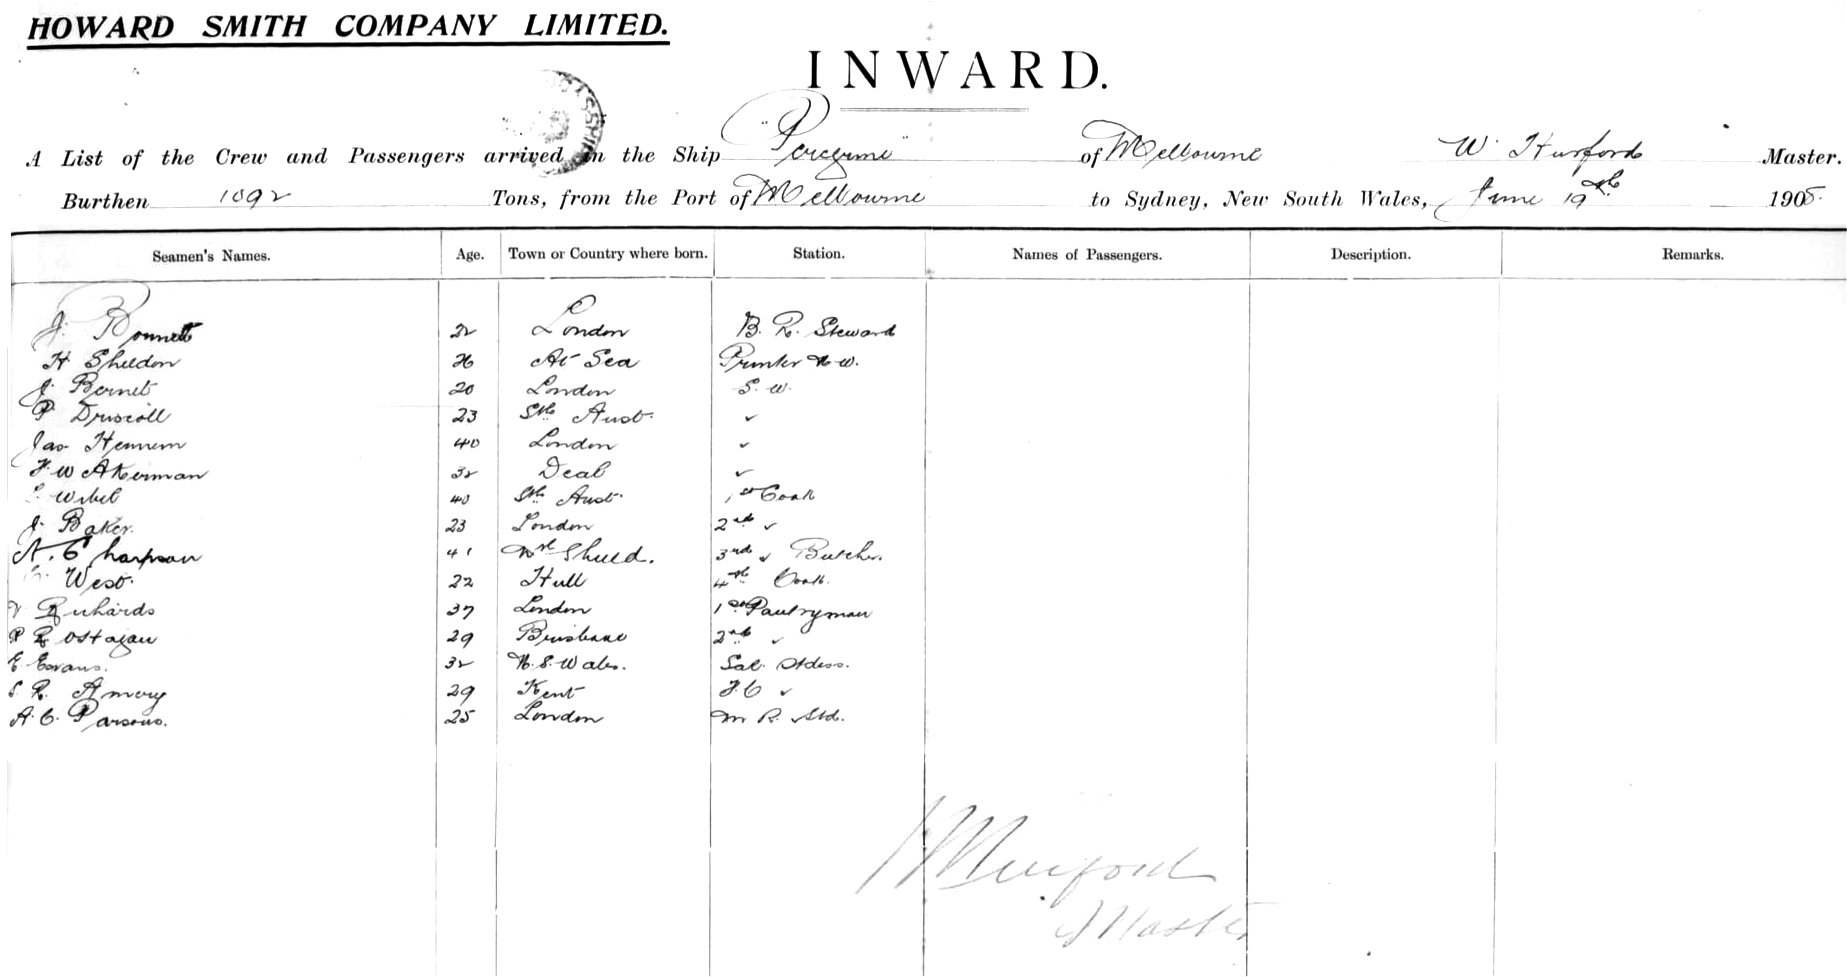 HOWARD SMITH COMPANY LIMITED.
INWARD.
A List of the Crew and Passengers arrived in the Ship "Peregrine" of Melbourne W. Hurford Master.
Burthen 1092 Tons, from the Port of Melbourne to Sydney, New South Wales, June 19th 1905.
Seamen's Names. Age. Town or Country where born. Station. Names of Passengers. Description. Remarks.
J. Bonnett 22 London B. R. Steward
H Sheldon 26 At Sea Printer N W.
J. Bernet 20 London S. W.
P Driscoll 23 Sth Aust. ✓
Jas Hennem 40 London ✓
F. W Akerman 32 Deal ✓
Wibel 40 Sth Aust. 1st Cook
J. Baker. 23 London 2nd ✓
A. Chapman 41 Nth Shield. 3rd ✓ Butcher.
West. 22 Hull 4th Cook.
Richards 37 London 1st Pantryman
P 29 Brisbane 2nd ✓
E Evans. 32 N. S. Wales. Sal. Stdess.
S. R. Amory 29 Kent F. C ✓
A. C. Parsons. 25 London M R. Std.
W Hurford
Master